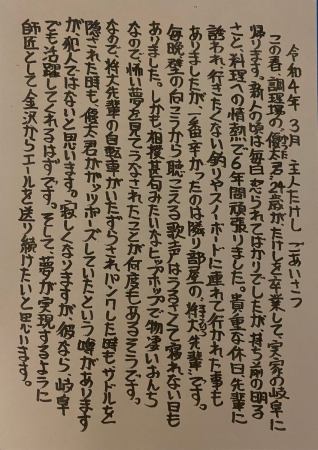 令和4年3月 主人たけし ごあいさつ
この春、調理場の優太君24歳がたけしを卒業して実家の岐阜に
帰ります。新人の頃は毎日怒られてばかりでしたが持ち前の明る
さと、料理への情熱で6年間頑張りました。貴重な休日、先輩に
誘われ、行きたくない釣りやスノーボートに連れて行かれた事も
ありましたが、一番辛かったのは隣り部屋の、将大先輩です。
毎晩壁の向こうから聴こえる歌声はうるさくて寝れない日も
ありました。しかも相撲甚句みたいなヒップホップで物凄いおんち
なので怖い夢を見てうなされたことが何度もあるそうです。
なので、将大先輩の自転車がいたずらされパンクした時も、サドルを
隠された時も、優太君がガッツポーズしていたという噂があります
が犯人ではないと思います。「寂しくなりますが、彼なら、岐阜
でも活躍してくれるはずです。そして、夢が実現するように
師匠として金沢からエールを送り続けたいと思います。